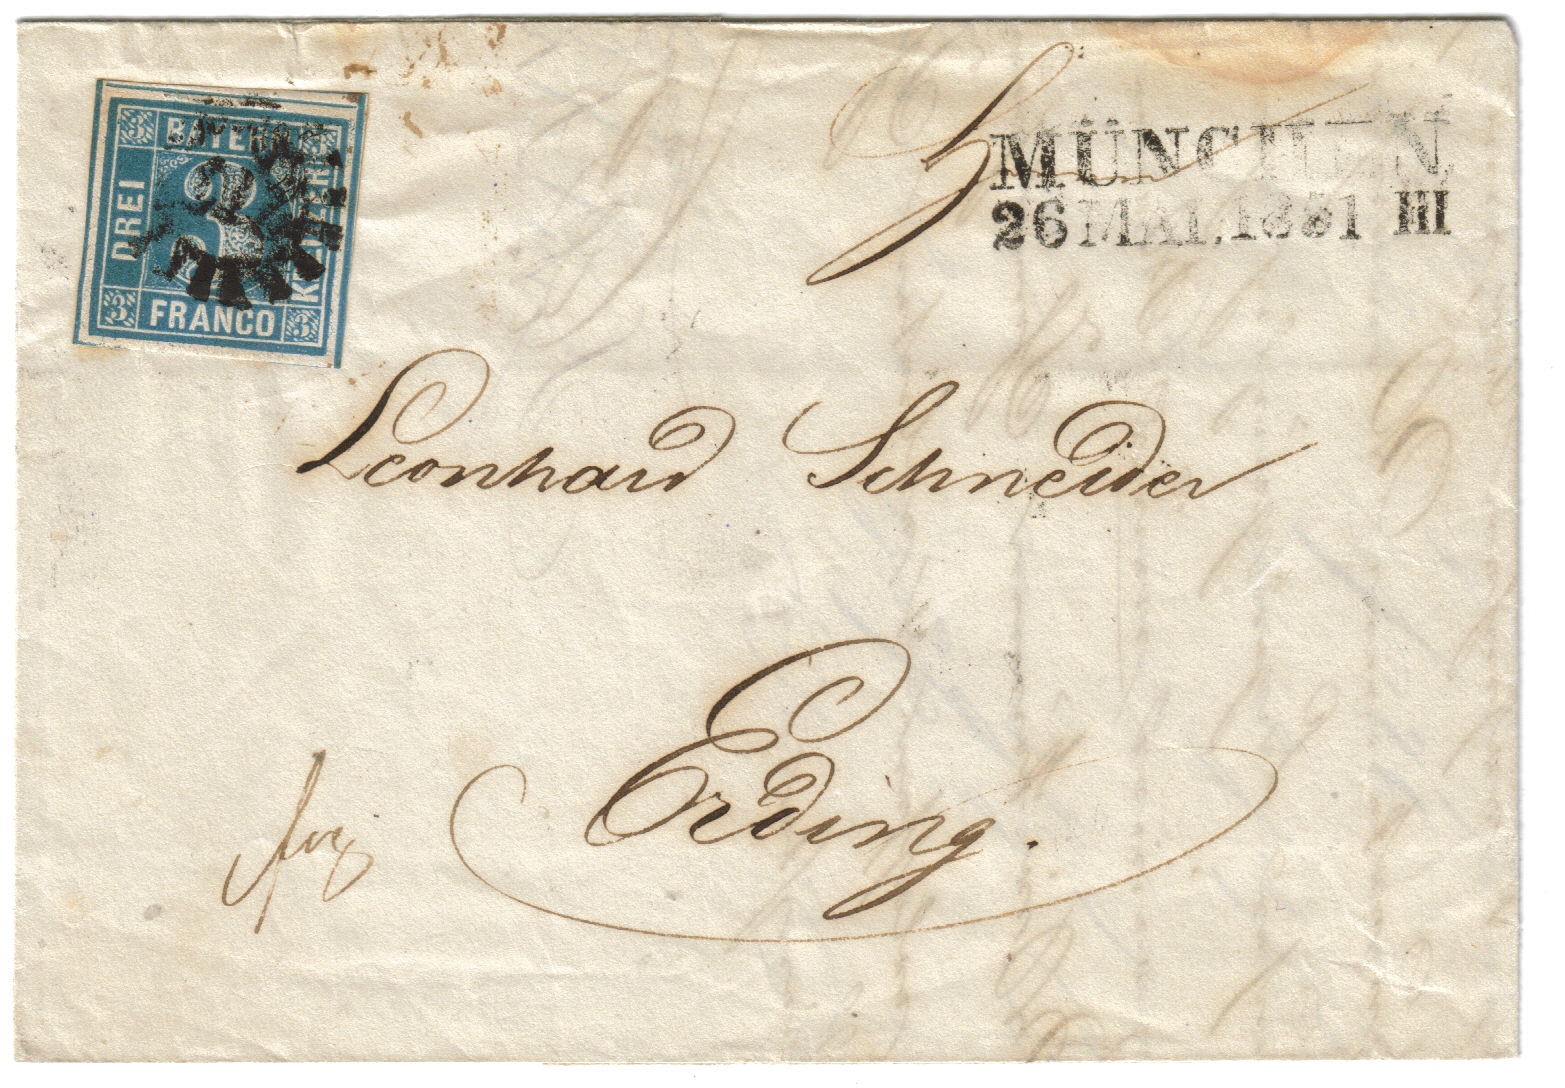 BAYERN
DREI
KREUZER
FRANCO
3
3
3
3
MÜNCHEN
26 MAI. 1851 III
Leonhard Schneider
Erding.
frco